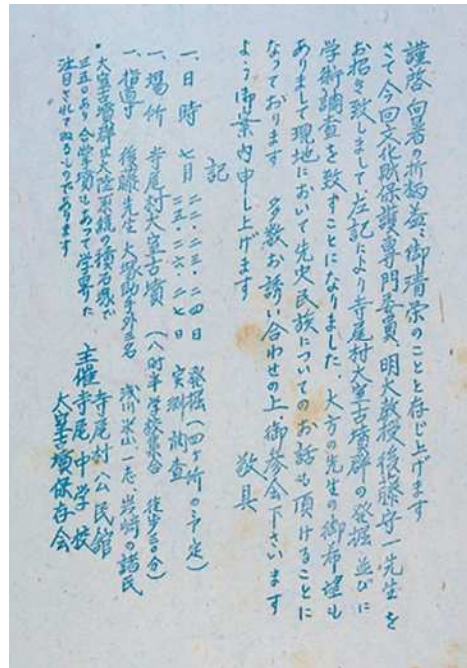 謹啓 向暑の折柄益々御清栄のことと存じ上げます
さて今回文化財保護専門委員、明大教授後藤守一先生を
お招き致しまして、左記により寺尾村大室古墳群の発掘並びに
学術調査を致すことになりました。大方の先生の御希望も
ありまして現地において先史民族についてのお話も頂けることに
なっております 多数お誘い合わせの上、御参会下さいます
よう御案内申し上げます
敬具
記
一、日時 七月 二二・二三・二四日 発掘(四ヶ所の予定)
二五・二六・二七日 実測調査
一、場所 寺尾村大室古墳 (八時半学校集合 徒歩三〇分)
一、指導 後藤先生 大塚助手外三名 浅川 米山 一志 岩崎の諸氏
・大室古墳群は大陸系統の積石塚で
三五〇あり合掌墳もあって学界た
注目されてゐるものであります
主催 寺尾村公民館
寺尾中学校
大室古墳保存会